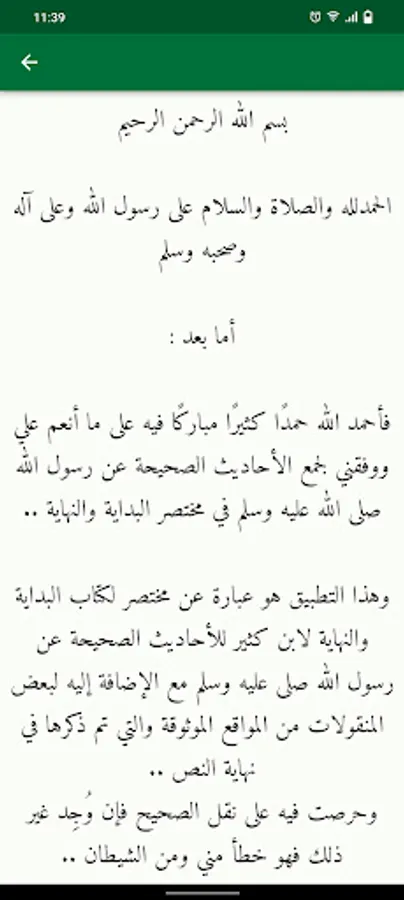 11:39
بسم الله الرحمن الرحيم
الحمدلله والصلاة والسلام على رسول الله وعلى آله
وصحبه وسلم
أما بعد :
فأحمد الله حمدًا كثيرًا مباركًا فيه على ما أنعم علي
ووفقني لجمع الأحاديث الصحيحة عن رسول الله
صلى الله عليه وسلم في مختصر البداية والنهاية ..
وهذا التطبيق هو عبارة عن مختصر لكتاب البداية
والنهاية لابن كثير للأحاديث الصحيحة عن
رسول الله صلى عليه وسلم مع الإضافة إليه لبعض
المنقولات من المواقع الموثوقة والتي تم ذكرها في
نهاية النص ..
وحرصت فيه على نقل الصحيح فإن وُجِد غير
ذلك فهو خطأ مني ومن الشيطان ..